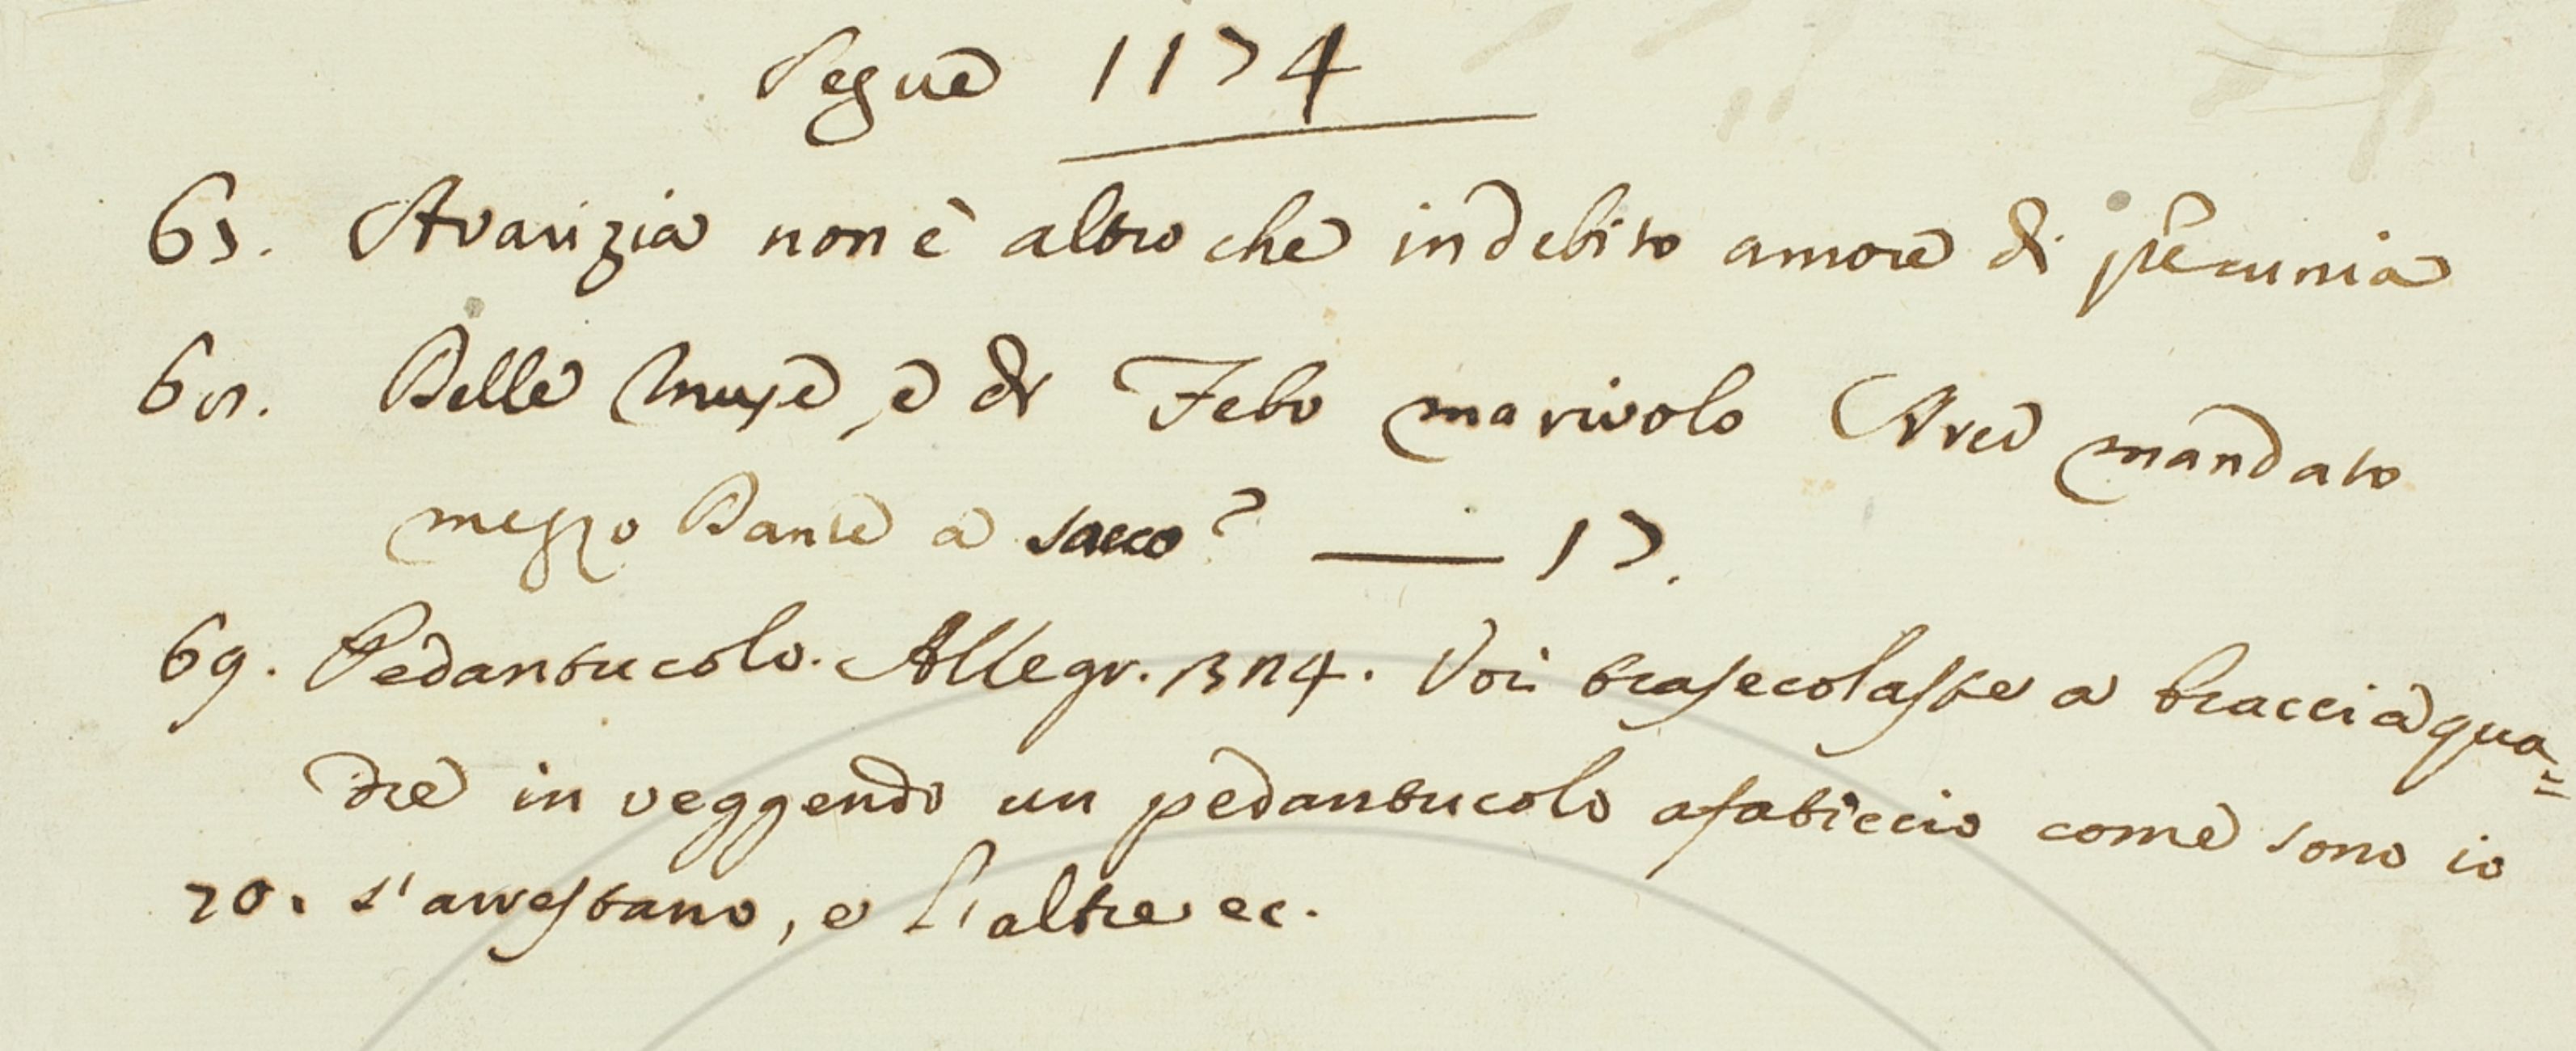 Segue 1174
67. Avarizia non è altro che indebito amore di pecunia
68. Delle Muse, e di Febo mariuolo Avea mandato
mezzo Dante a sacco? — 17.
69. Pedantucolo. Allegr. 184. Voi trasecolaste a braccia qua=
dre in veggendo un pedantucolo afaticcio come sono io
70. s'arrestano, e l'altre ec.